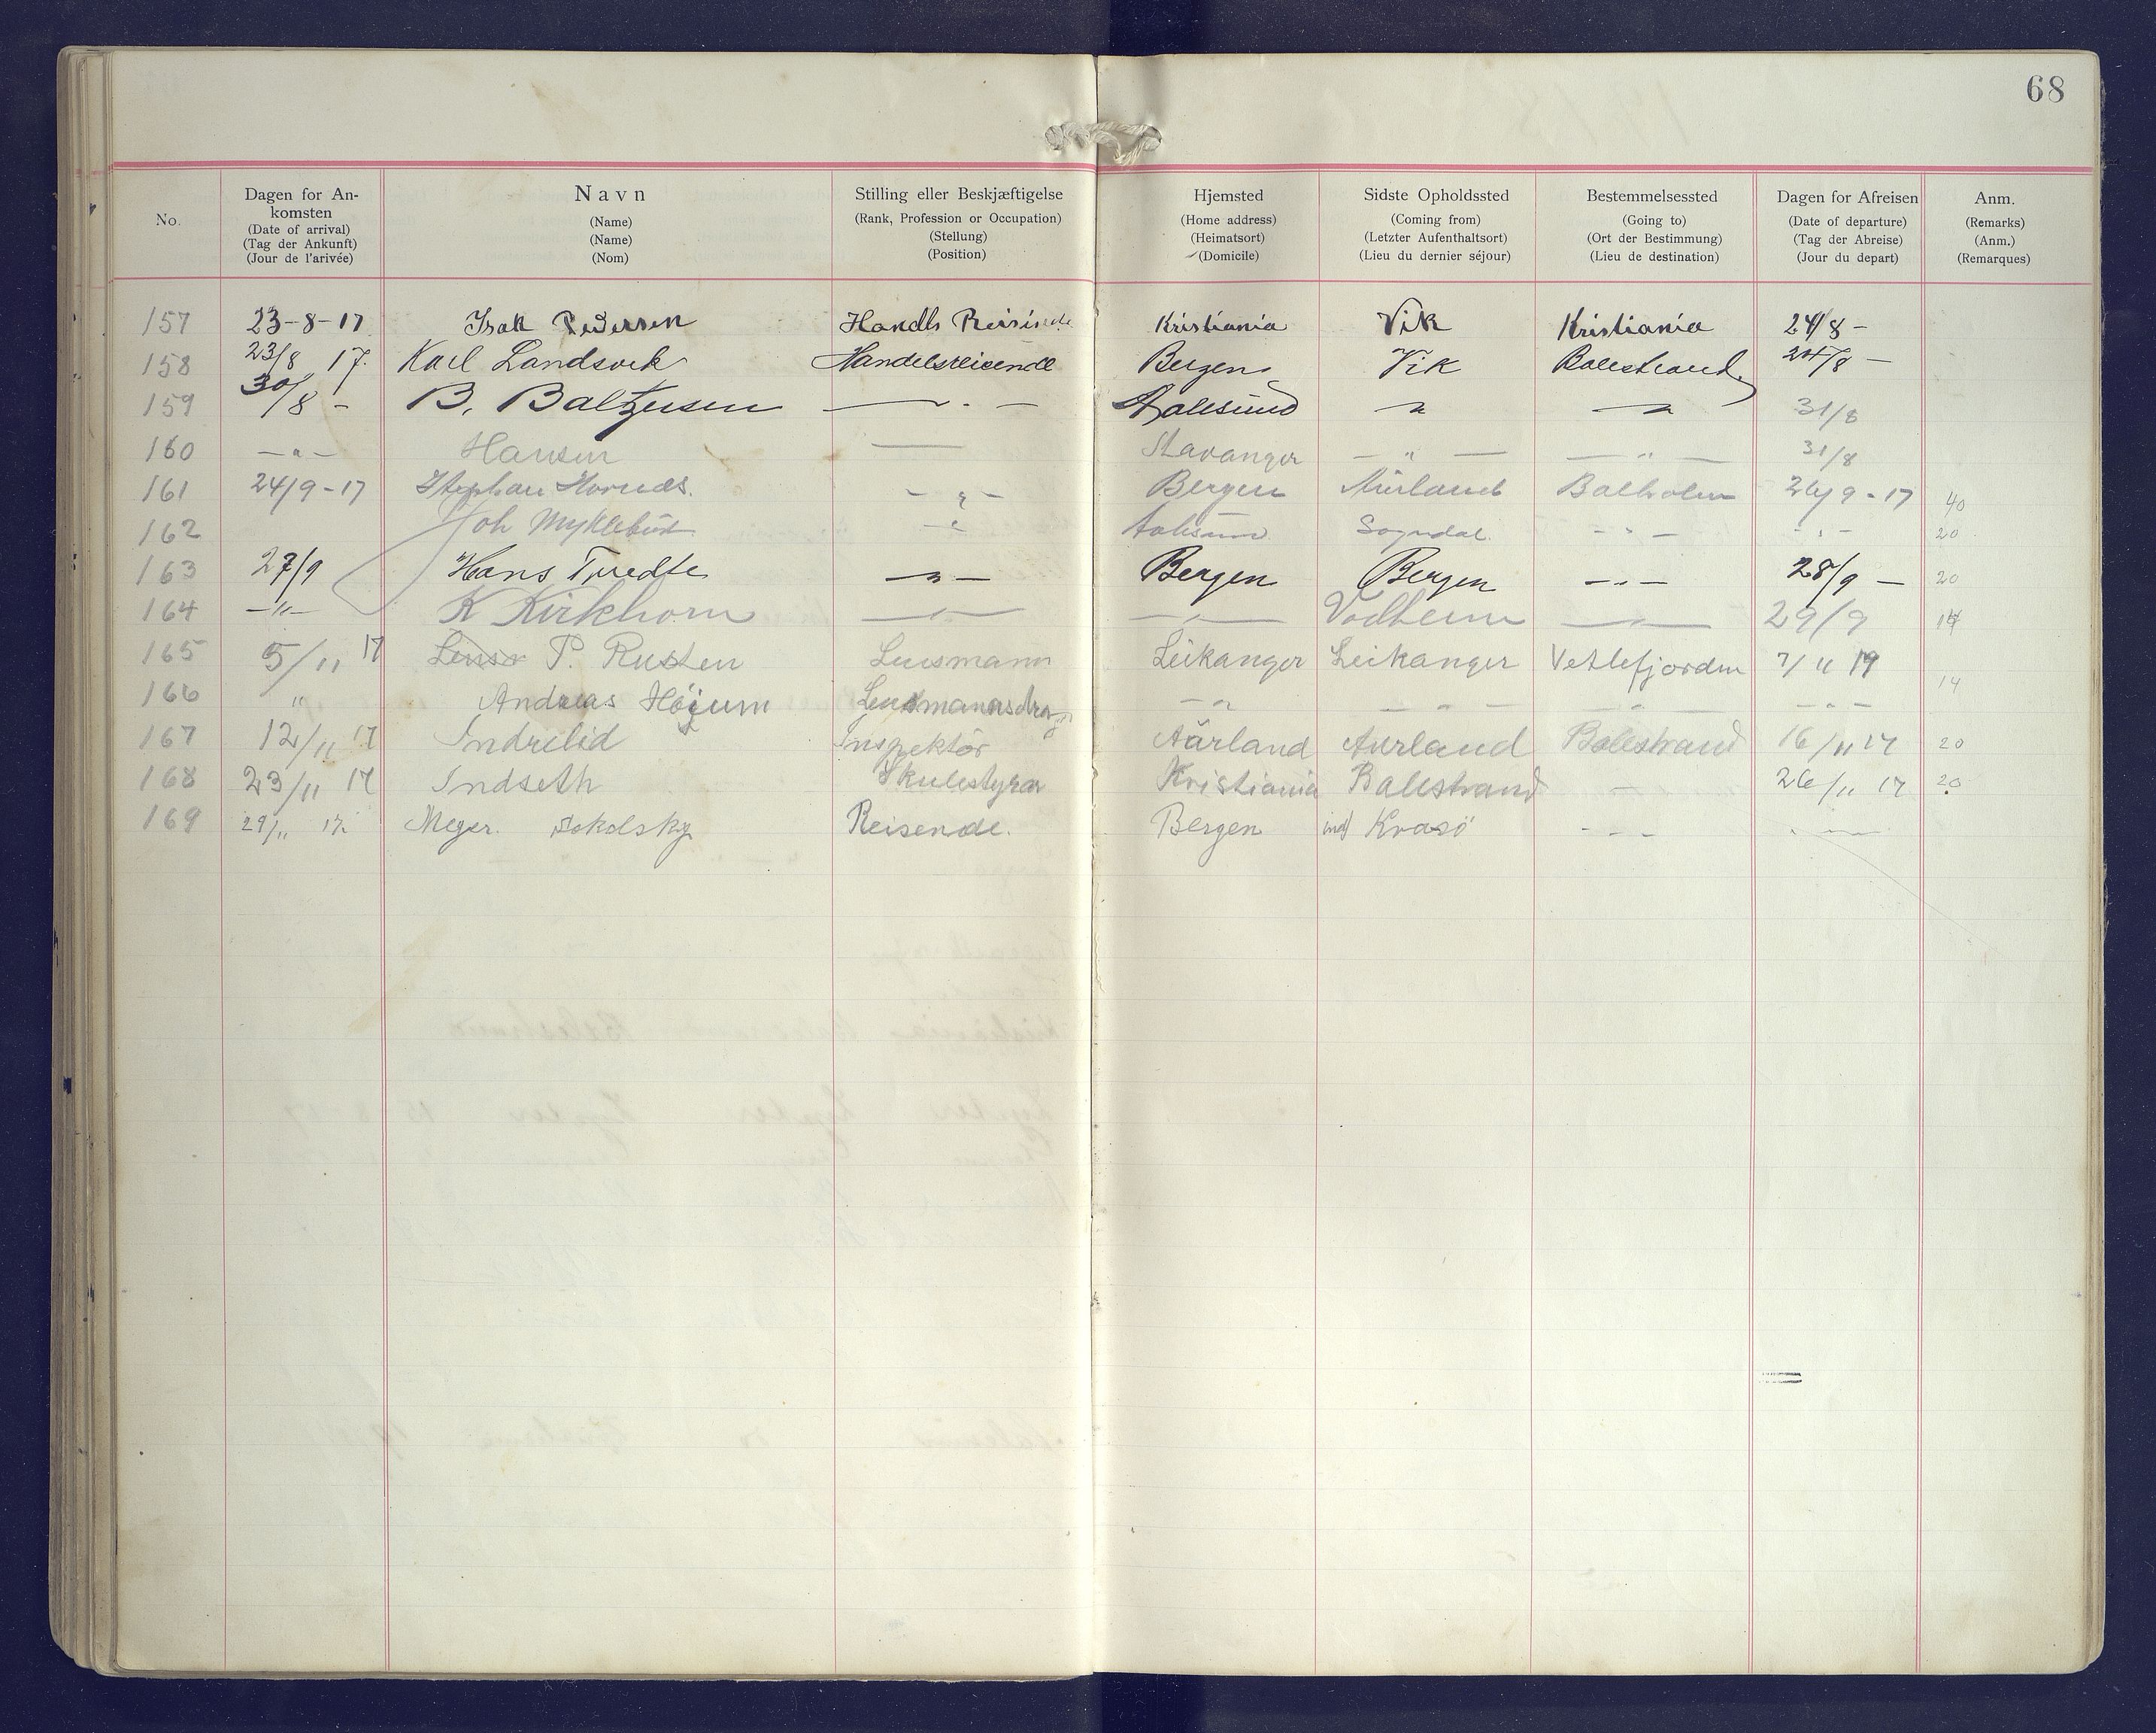 68
No.
Dagen for An-
komsten
(Date of arrival)
(Tag der Ankunft)
(Jour de l'arivée)
Navn
(Name)
(Name)
(Nom)
Stilling eller Beskjæftigelse
(Rank, Profession or Occupation)
(Stellung)
(Position)
Hjemsted
(Home address)
(Heimatsort)
(Domicile)
Sidste Opholdssted
(Coming from)
(Letzter Aufenthaltsort)
(Lieu du dernier séjour)
Bestemmelsessted
(Going to)
(Ort der Bestimmung)
(Lieu de destination)
Dagen for Afreisen
(Date of departure)
(Tag der Abreise)
(Jour du depart)
Anm.
(Remarks)
(Anm.)
(Remarques)
157 23-8-17 Isak Pedersen Handls Reisinde Kristiania Vik Kristiania 24/8 -
158 23/8 17. Karl Landsvik Handelsreisende Bergen Vik Balestrand 24/8 -
159 30/8 - B. Baltzersen — " — Aalesund " " 31/8
160 - " - Hansen — Stavanger — " — — " — 31/8
161 24/9-17 Stephan - " - Bergen Aurland Balholm 26/9-17 40
162 Joh Myklebust - " - Aalesund Sogndal - " - - " - 20
163 27/9 Hans Tvedte - " - Bergen Bergen - " - 28/9 - 20
164 - " - K Kirkhorn — " — — " — Vadheim — " — 29/9
165 5/11 17 P. Rusten Lensmann Leikanger Leikanger Vetlefjorden 7/11
166 " Andreas Höjum Lensmannsdreng - " - — " — — " — - " - 14
167 12/11 17 Indrelid Inspektör Aurland Aurland Balestrand 16/11 17 20
168 23/11 17 Indseth Skulestyrar Kristiania Balestrand - 26/11 17 20
169 29/11 17. Meyer. Sokolsky Reisende. Bergen Kvasö - - - - " -